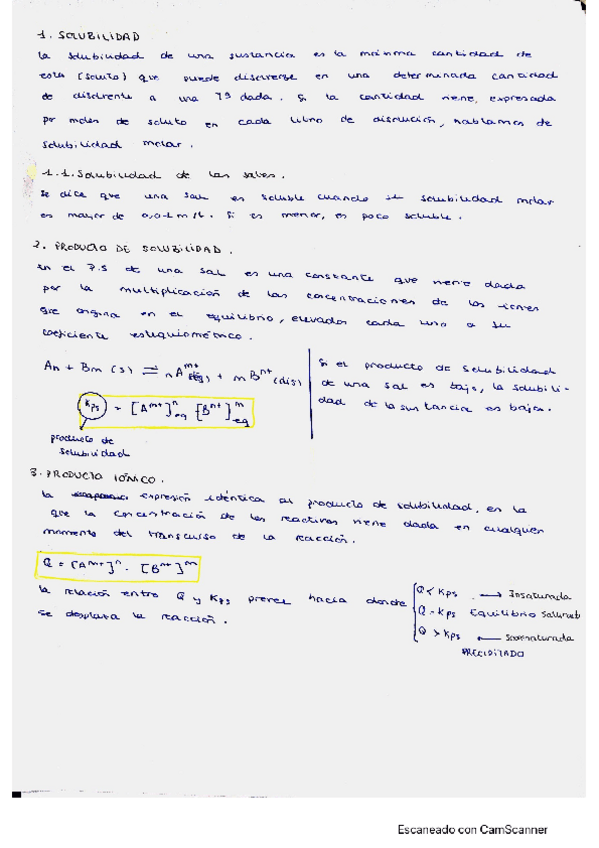 1. SOLUBILIDAD
La solubilidad de una sustancia es la máxima cantidad de
esta (soluto) que puede disolverse en una determinada cantidad
de disolvente a una Tª dada. Si la cantidad viene expresada
por moles de soluto en cada litro de disolución, hablamos de
solubilidad molar.
1.1. Solubilidad de las sales.
Se dice que una sal es soluble cuando su solubilidad molar
es mayor de 0,01 m/L. Si es menor, es poco soluble.
2. PRODUCTO DE SOLUBILIDAD.
En el P.S de una sal es una constante que viene dada
por la multiplicación de las concentraciones de los iones
que origina en el equilibrio, elevados cada uno a su
coeficiente estequiométrico.
An + Bm (s) ⇌ n A^m+ (dis) + m B^n+ (dis)
Kps = [A^m+]^n eq [B^n+]^m eq
producto de
solubilidad
Si el producto de solubilidad
de una sal es bajo, la solubili-
dad de la sustancia es baja.
3. PRODUCTO IÓNICO.
La expresión idéntica al producto de solubilidad, en la
que la concentración de los reactivos viene dada en cualquier
momento del transcurso de la reacción.
Q = [A^m+]^n · [B^n+]^m
La relación entre Q y Kps prevee hacia donde
se desplaza la reacción.
Q < Kps → Insaturada
Q = Kps Equilibrio
Q > Kps ← Sobresaturada
PRECIPITADO
Escaneado con CamScanner